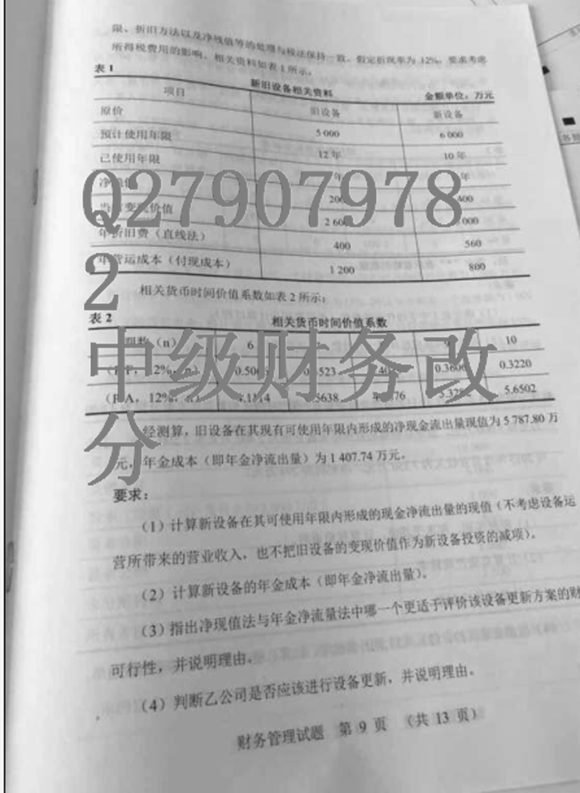 限、折旧方法以及净残值等的处理与税法保持一致,假定折现率为 12%,要求考虑
所得税费用的影响。相关资料如表 1 所示:
表 1
新旧设备相关资料
金额单位:万元
项目 旧设备 新设备
原价 5 000 6 000
预计使用年限 12 年 10 年
已使用年限 年 年
净残值 200 400
当前变现价值 2 600 000
年折旧费(直线法) 400 560
年营运成本(付现成本) 1 200 800
相关货币时间价值系数如表 2 所示:
表 2
相关货币时间价值系数
期数(n) 6 9 10
(P/F,12%,n) 0.3606 0.3220
(P/A,12%,n) 5.3282 5.6502
经测算,旧设备在其现有可使用年限内形成的净现金流出量现值为 5 787.80 万
元,年金成本(即年金净流出量)为 1 407.74 万元。
要求:
(1)计算新设备在其可使用年限内形成的现金净流出量的现值(不考虑设备运
营所带来的营业收入,也不把旧设备的变现价值作为新设备投资的减项)。
(2)计算新设备的年金成本(即年金净流出量)。
(3)指出净现值法与年金净流量法中哪一个更适于评价该设备更新方案的财
可行性,并说明理由。
(4)判断乙公司是否应该进行设备更新,并说明理由。
财务管理试题 第 9 页 (共 13 页)
Q27907978
2
中级财务改
分